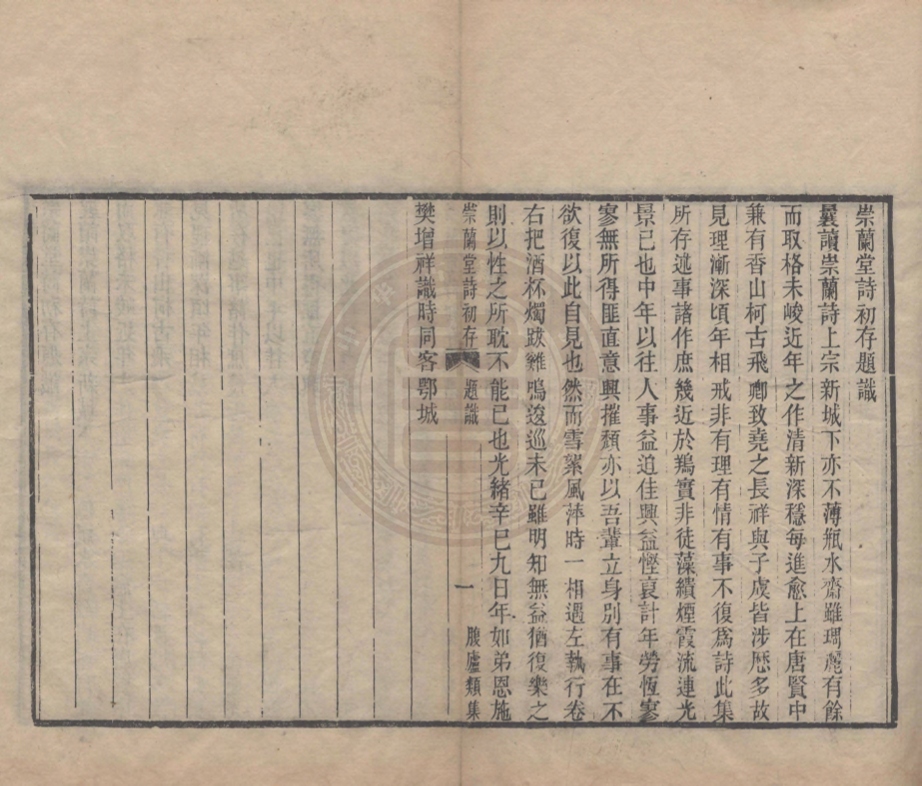 崇蘭堂詩初存題識
曩讀崇蘭詩上宗新城下亦不薄瓶水齋雖琱麗有餘
而取格未峻近年之作清新深穩每進愈上在唐賢中
兼有香山柯古飛卿致堯之長祥與子虞皆涉歷多故
見理漸深頃年相戒非有理有情有事不復爲詩此集
所存述事諸作庶幾近於鷄實非徒藻繢煙霞流連光
景已也中年以往人事益迫佳興益慳哀計年勞恆寥
寥無所得匪直意興摧頹亦以吾輩立身別有事在不
欲復以此自見也然而雪絮風萍時一相遇左執行卷
右把酒杯燭跋雞鳴逡巡未已雖明知無益猶復樂之
則以性之所耽不能已也光緒辛巳九日年如弟恩施
崇蘭堂詩初存 題識 一 腹廬類集
樊增祥識時同客鄂城